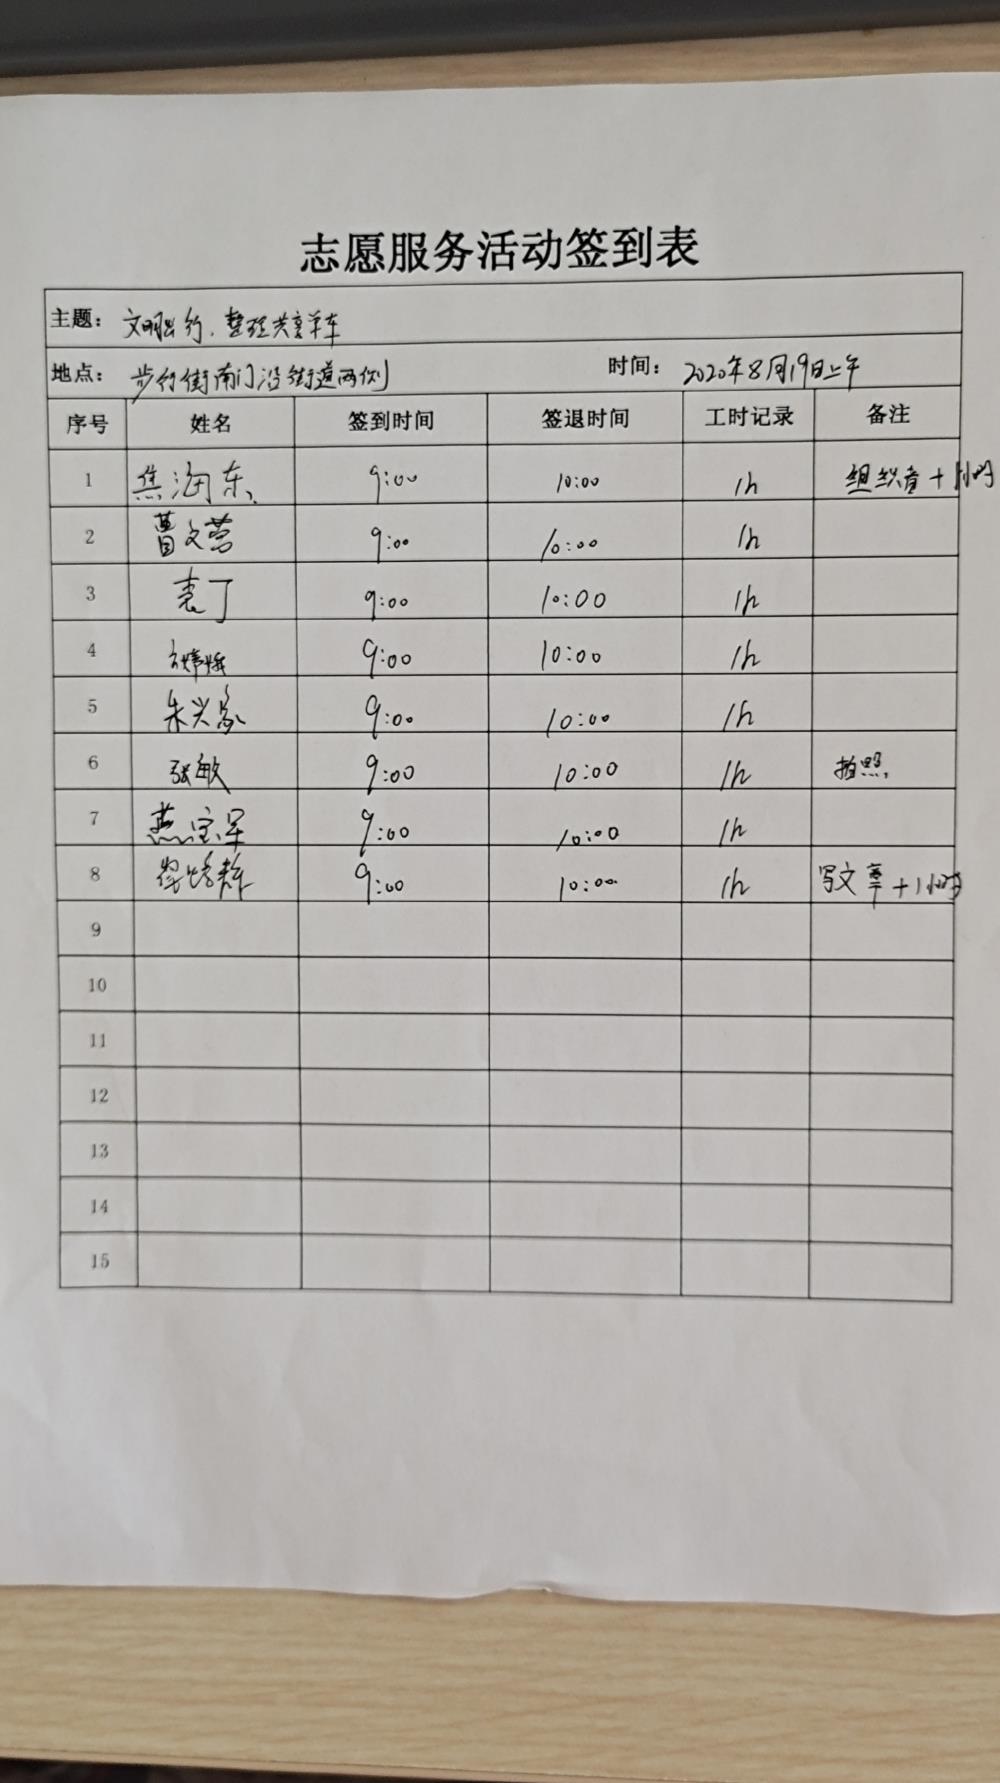 志愿服务活动签到表
主题： 文明出行，整理共享单车
地点： 步行街南门沿街道两侧 时间： 2020年8月19日上午
序号 姓名 签到时间 签退时间 工时记录 备注
1 焦海东 9:00 10:00 1h 组织者+1小时
2 曹文营 9:00 10:00 1h
3 袁丁 9:00 10:00 1h
4 9:00 10:00 1h
5 朱兴家 9:00 10:00 1h
6 张敏 9:00 10:00 1h 拍照
7 燕宝军 9:00 10:00 1h
8 9:00 10:00 1h 写文章+1小时
9
10
11
12
13
14
15